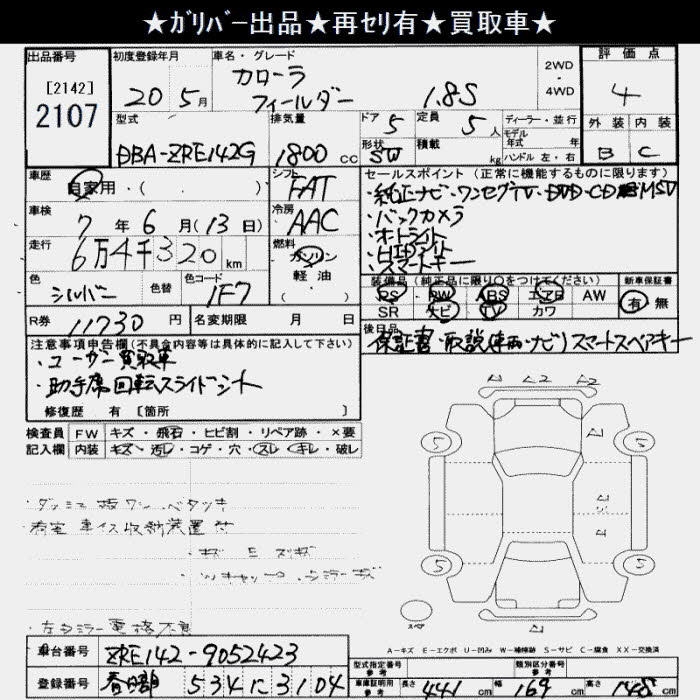 ★ｶﾞﾘﾊﾞｰ出品★再ｾﾘ有★買取車★
出品番号 初度登録年月 車名・グレード 2WD・4WD 評価点
[2142]
2107 20年5月 カローラ フィールダー 1.8S 4
型式 排気量 ドア 定員 ディーラー・並行 外装 内装
DBA-ZRE142G 1800cc 5 5人 モデル年式 年 B C
形状 SW 積載 kg ハンドル 左・右
車歴 自家用・( . ) シフト FAT セールスポイント (正常に機能するものに限ります)
・純正ナビ・ワンセグTV・DVD・CD・MSV
車検 7年6月(13日) 冷房 AAC ・バックカメラ
・オートライト
走行 6万4千320km 燃料 ガソリン 軽油 ( ) ・HIDライト
・スマートキー
色 シルバー 色替 色コード 1F7
装備品 (純正品に限り○をつけてください) 新車保証書
PS PW ABS エアB AW 有・無
SR ナビ TV カワ
R券 11730円 名変期限 月 日
後日品 保証書・取説(車両・ナビ)スマートスペアキー
注意事項申告欄(不具合内容等は具体的に記入して下さい)
・ユーザー買取車
・助手席回転スライドシート
修復歴 有 [箇所 ]
検査員 FW キズ・飛石・ヒビ割・リペア跡・×要
記入欄 内装 キズ・汚レ・コゲ・穴・スレ・キレ・破レ
1 2 2
5 5
5 5
・左右ミラー電格不良
A-キズ E-エクボ U-凹み W-補修跡 S-サビ C-腐食 XX-交換済
車台番号 ZRE142-9052423
登録番号 春日部 534に3104
型式指定番号 参考 類別区分番号 参考
車庫証明用 参考 長さ 441cm 幅 169cm 高さ 148cm